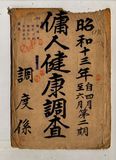 昭和十三年自四月至六月第二期
傭人健康調査
調度係